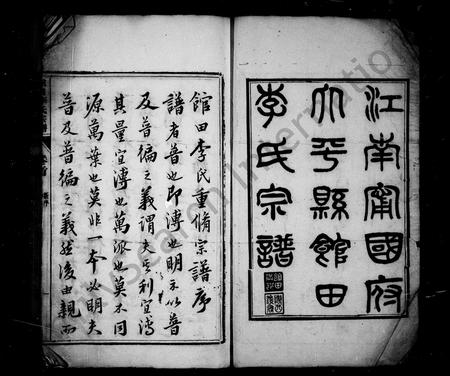 江南甯國府
太平縣館田
李氏宗譜
館田李氏重脩宗譜序
譜者普也即溥也明示以普
及普徧之義謂夫至利宜溥
其量宜溥也萬派也莫不同
源萬葉也莫非一本必明夫
普及普徧之義然後由親而